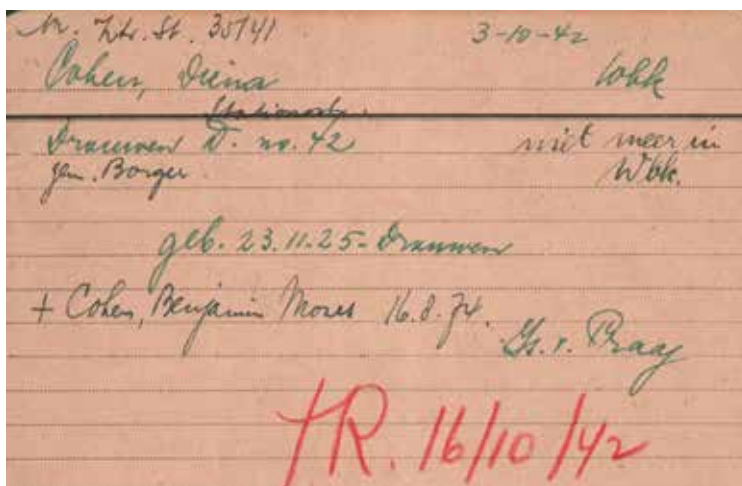 35141 3-10-42
Cohen, Diena Wbk
Drouwen D. no. 42 niet meer in
gem. Borger Wbk.
geb. 23.11.25 - Drouwen
+ Cohen, Benjamin Mozes 16.8.74.
Gs. v. Praag
tR. 16/10/42